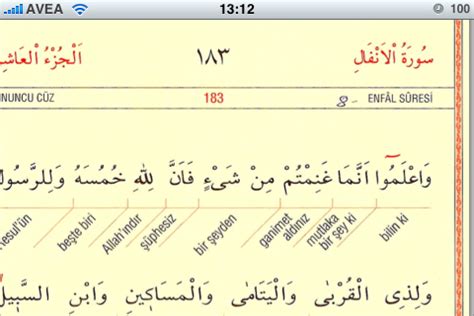 AVEA 13:12 100
سُورَةُ الْاَنْفَالِ ١٨٣ اَلْجُزْءُ الْعَاشِ
NUNCU CÜZ 183 8- ENFÂL SÛRESİ
وَاعْلَمُٓوا اَنَّمَا غَنِمْتُمْ مِنْ شَيْءٍ فَاَنَّ لِلّٰهِ خُمُسَهُ وَلِلرَّسُو
bilin ki
mutlaka
bir şey ki
ganimet
aldınız
bir şeyden
şüphesiz
Allah'ındır
beşte biri
Resul'ün
وَلِذِي الْقُرْبٰى وَالْيَتَامٰى وَالْمَسَاكٖينِ وَابْنِ السَّبٖيلِ